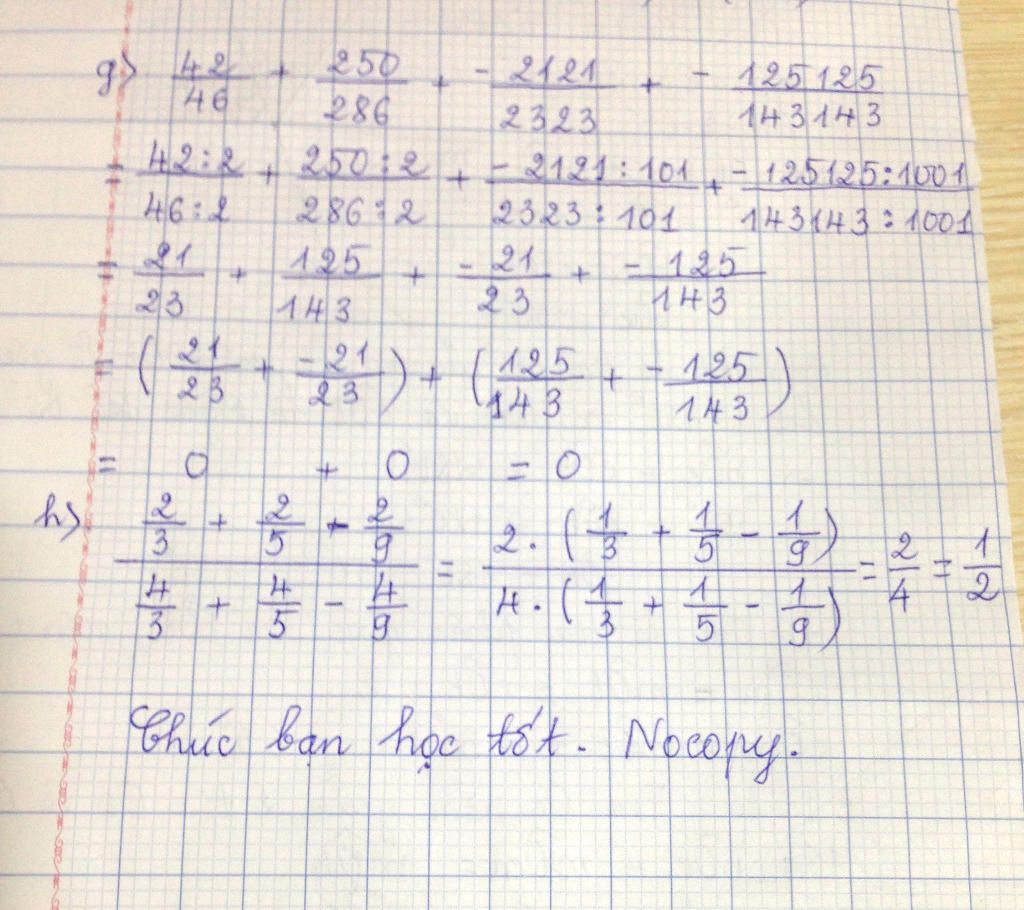 g) 42/46 + 250/286 + -2121/2323 + -125125/143143
= 42:2/46:2 + 250:2/286:2 + -2121:101/2323:101 + -125125:1001/143143:1001
= 21/23 + 125/143 + -21/23 + -125/143
= (21/23 + -21/23) + (125/143 + -125/143)
= 0 + 0 = 0
h) (2/3 + 2/5 - 2/9)/(4/3 + 4/5 - 4/9) = 2.(1/3 + 1/5 - 1/9)/4.(1/3 + 1/5 - 1/9) = 2/4 = 1/2
Chúc bạn học tốt. Nocopy.